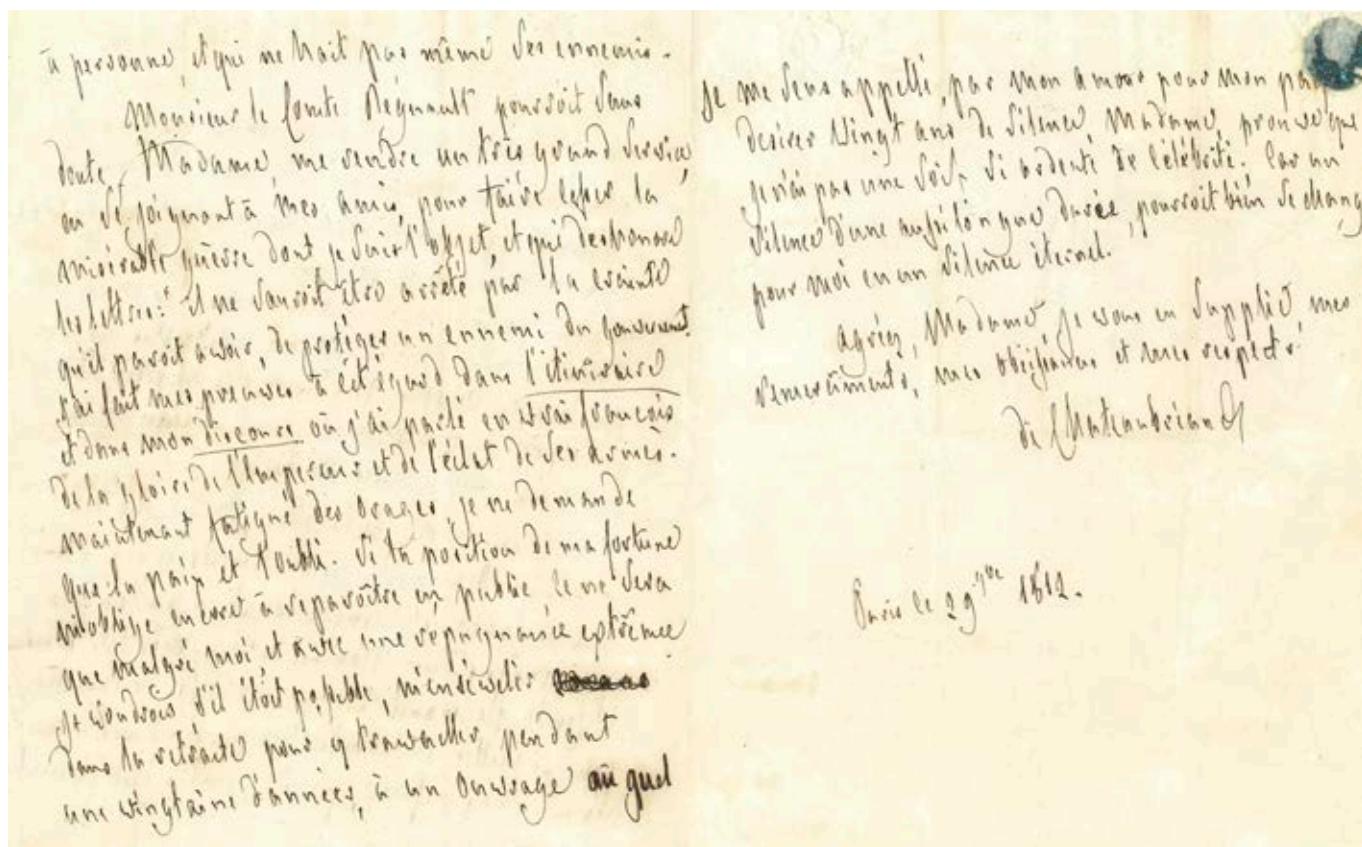 à personne, et qui ne hait pas même ses ennemis.
Monsieur le Comte Regnault pourroit sans
doute, Madame, me rendre un très grand service,
en se joignant à mes amis, pour faire cesser la
misérable guerre dont je suis l'objet, et qui deshonore
les lettres: il ne sauroit être arrêté par la crainte
qu'il paroit avoir, de protéger un ennemi du gouvernement.
J'ai fait mes preuves à cet égard dans l'itinéraire
et dans mon discours où j'ai parlé en vrai françois
de la gloire de l'Empereur et de l'éclat de ses armes.
Maintenant fatigué des orages, je ne demande
que la paix et l'oubli. Si la position de ma fortune
m'oblige encore à reparoître en public, ce ne sera
que malgré moi, et avec une répugnance extrême
je voudrois, s'il étoit possible, m'ensévelir
dans la retraite pour y travailler, pendant
une vingtaine d'années, à un ouvrage au quel
je me sens appellé, par mon amour pour mon pays
desirer vingt ans de silence, Madame, prouve que
je n'ai pas une soif si ardente de célébrité; car un
silence d'une aussi longue durée, pourroit bien se chang
pour moi en un silence éternel.
agréez, Madame, je vous en supplie, mes
remercîments, mes obéissances et mes respects.
de Chateaubriand
Paris le 29 9bre 1812.